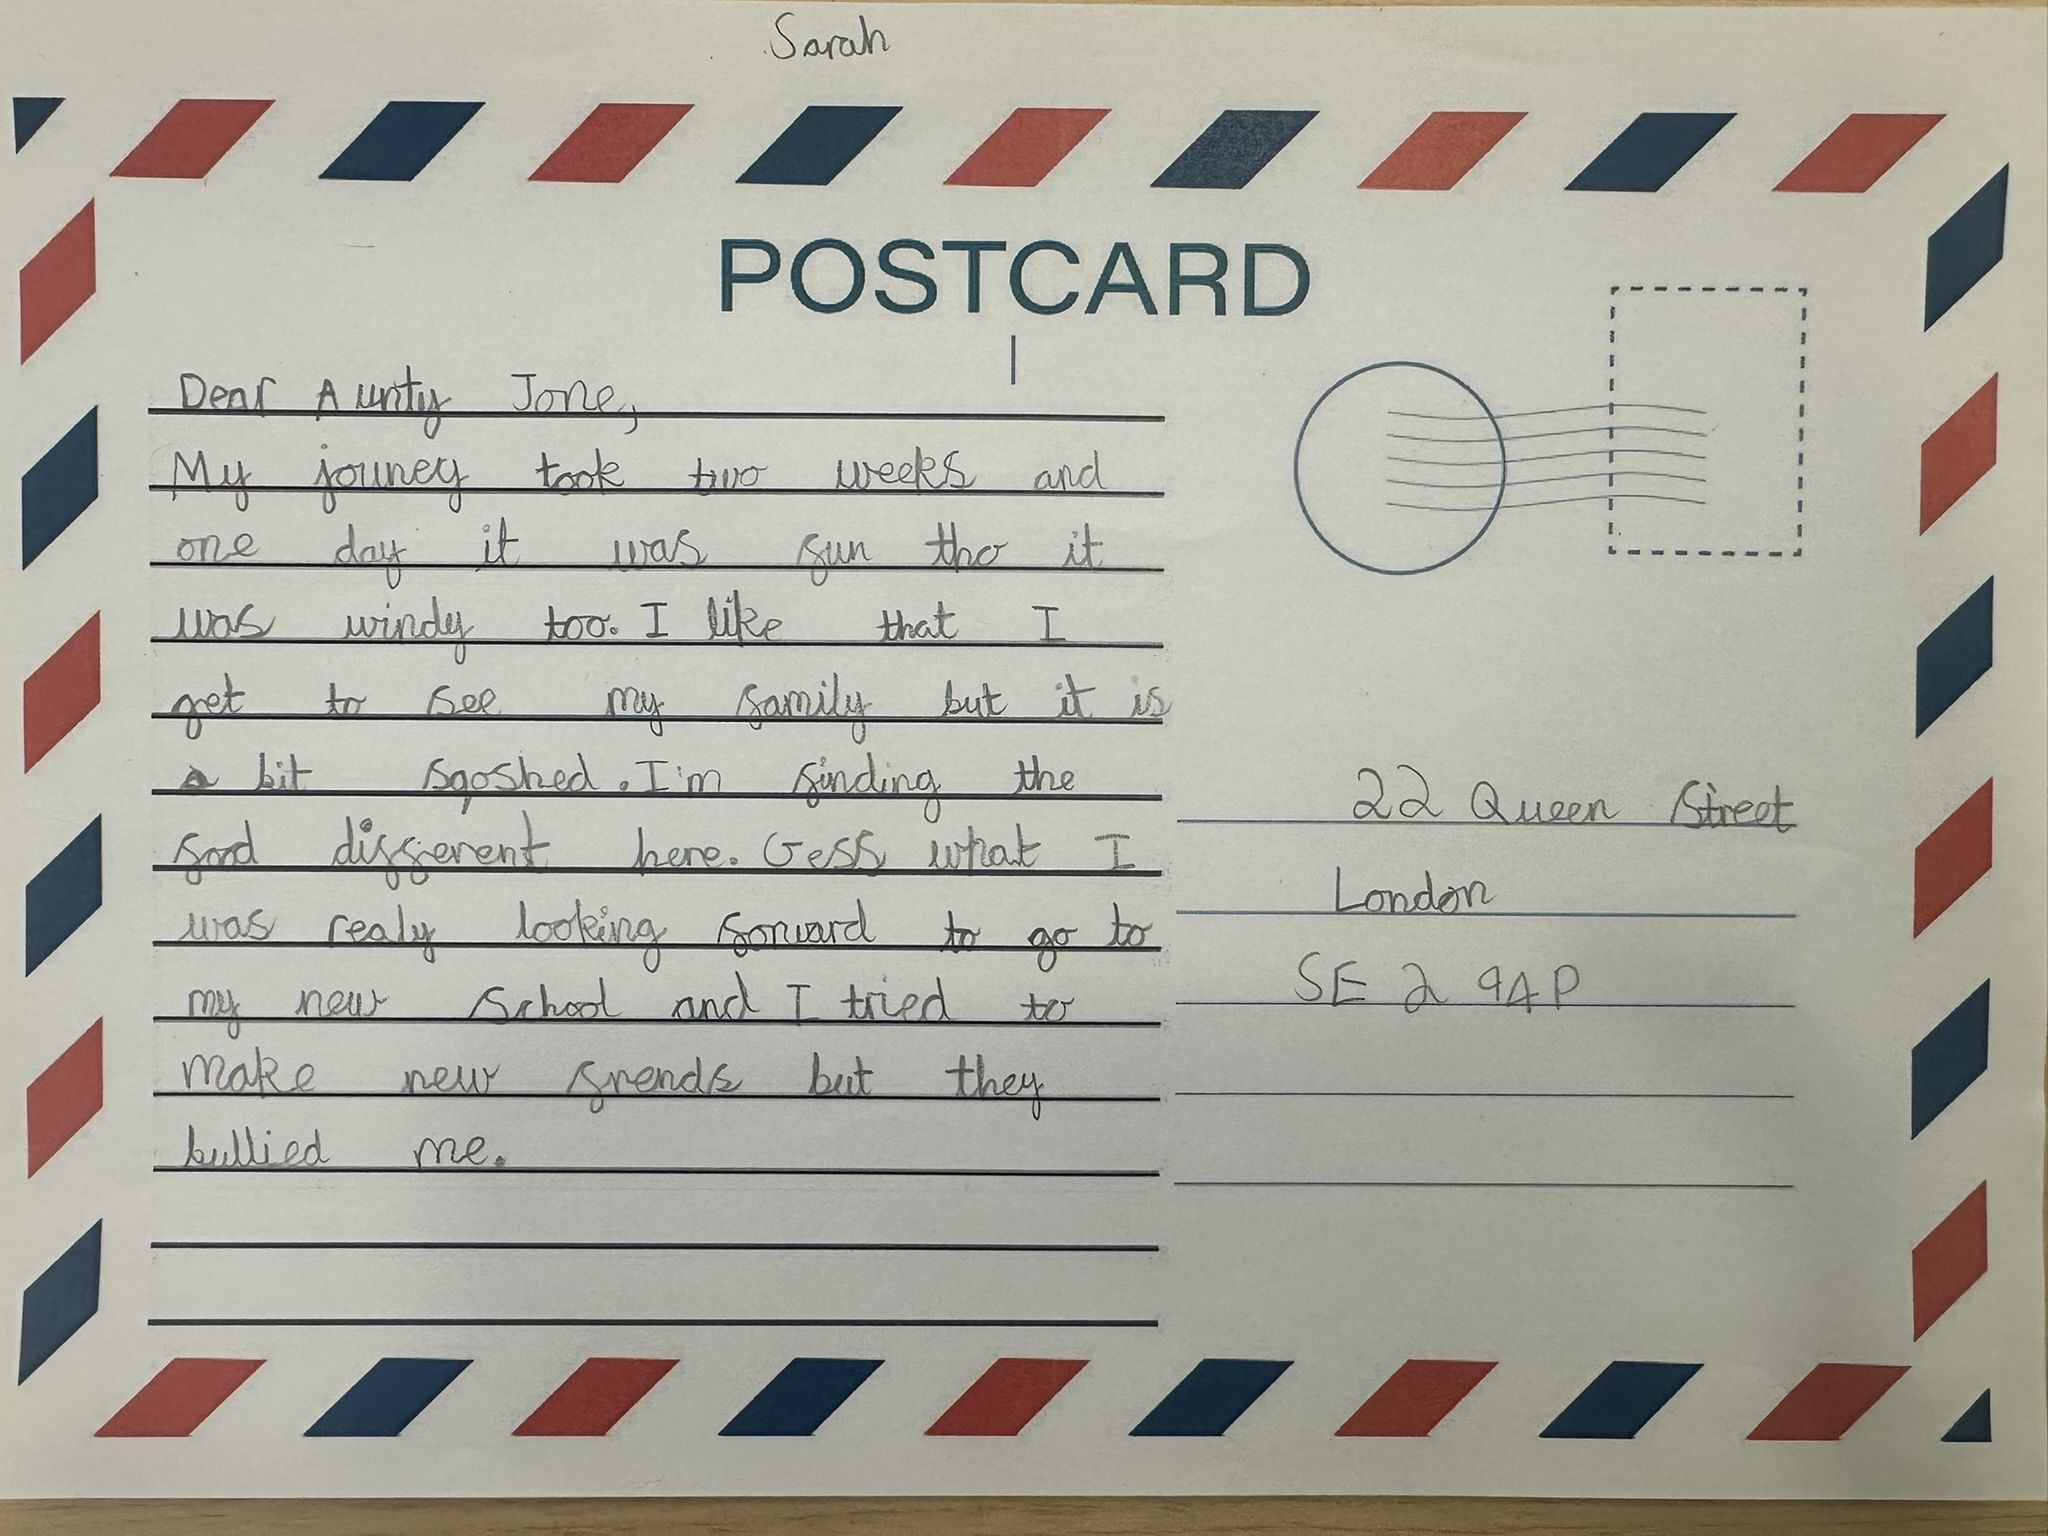 Sarah
POSTCARD
Dear Aunty Jone,
My jouney took two weeks and
one day it was sun tho it
was windy too. I like that I
get to see my family but it is
a bit sqoshed. I'm finding the
food different here. Gess what I
was realy looking forward to go to
my new school and I tried to
make new frends but they
bullied me.
22 Queen Street
London
SE2 9AP